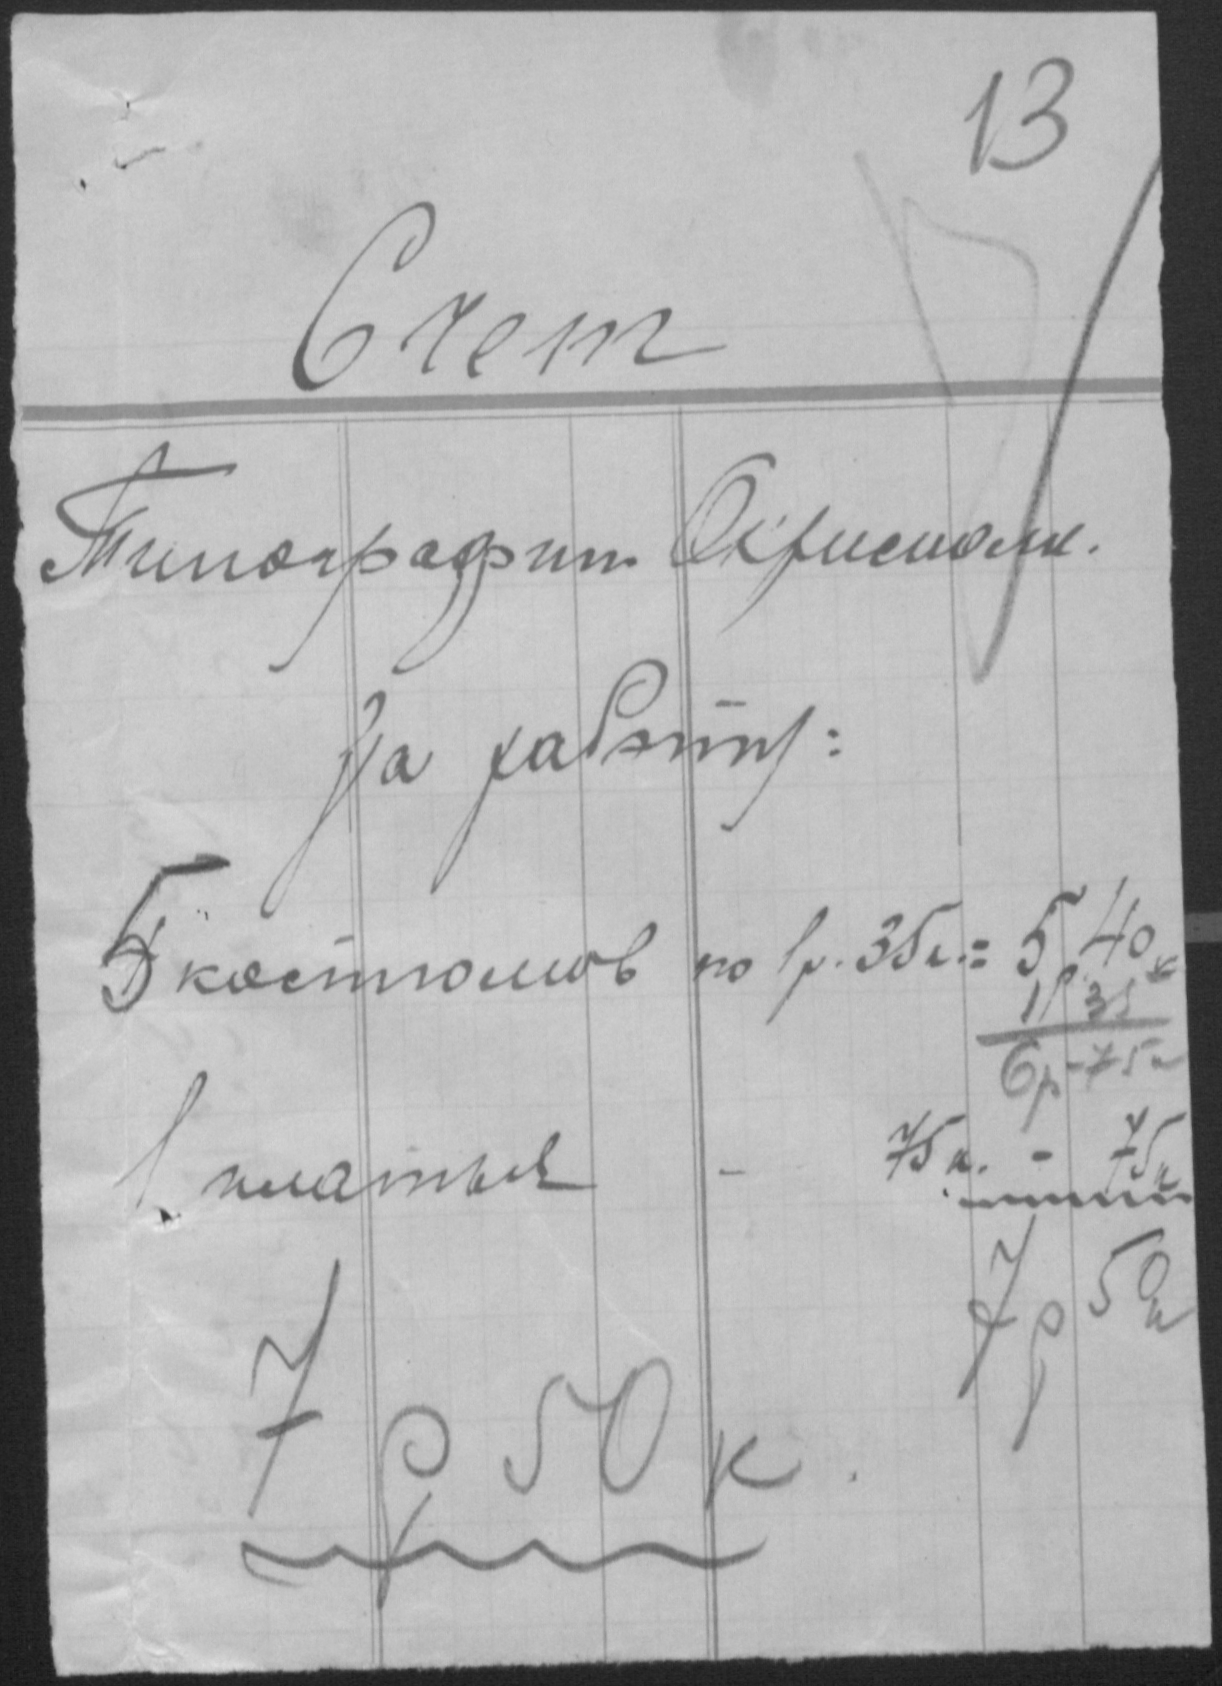 13
Счет
Типографии
За работу:
5 костюмов по 1р. 35к. = 5р 40к
1р 35
6р-75к
1 платье - 75к. - 75к
7р 50к
7р 50к.